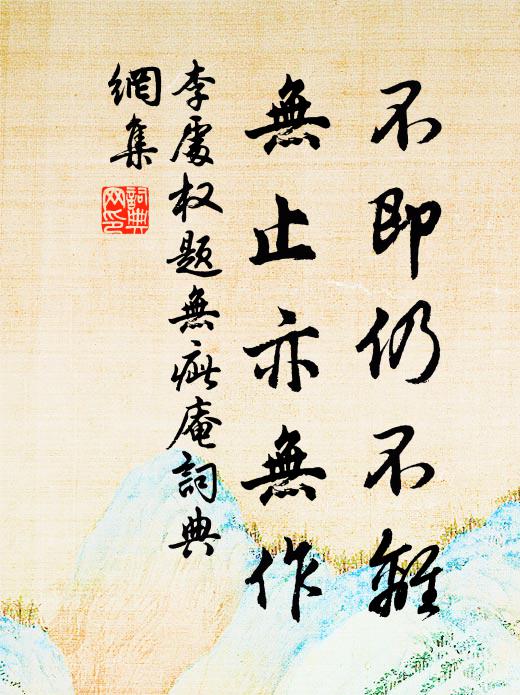 不即仍不離
無止亦無作
李處权题無疵庵詞典
網集
詞典網印